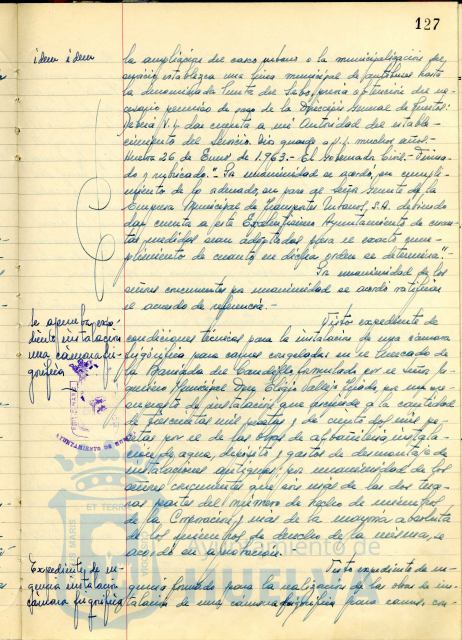 127
idem idem
la ampliación del casco urbano o la municipalización del
servicio establezca una línea municipal de autobuses hasta
la denominada Punta del Sebo, previa obtención del ne-
cesario permiso de paso de la Dirección General de Puertos.
Deberá V.I. dar cuenta a mi Autoridad del estable-
cimiento del servicio. Dios guarde a V.I. muchos años.-
Huelva 26 de Enero de 1.963.- El Gobernador Civil.- Firma-
do y rubricado." Por unanimidad se acordó, en cumpli-
miento de lo ordenado, su pase al
Empresa Municipal de Transportes Urbanos, S.A. debiendo
dar cuenta a este Excelentísimo Ayuntamiento de cuan-
tas medidas sean adoptadas para el exacto cum-
plimiento de cuanto en dicha orden se determina".-
Por unanimidad de los
señores concurrentes por unanimidad se acordó ratificar
el acuerdo de referencia.-
Se aprueba expe-
diente instalación
una cámara fri-
gorífica
Visto expediente de
condiciones técnicas para la instalación de una cámara
frigorífica para carnes congeladas en el Mercado de
la Barriada del Candilla formulado por el Señor In-
geniero Municipal Don Eligio Vallés por un pre-
supuesto de instalación que asciende a la cantidad
de trescientas mil pesetas y de ciento dos mil pe-
setas por el de las obras de albañilería, instala-
ciones de agua, depósito y gastos de desmontaje de
instalaciones antiguas, por unanimidad de los
señores concurrentes que son más de las dos terce-
ras partes del número de hecho de miembros
de la Corporación y más de la mayoría absoluta
de los miembros de derecho de la misma, se
acordó su aprobación.
AYUNTAMIENTO DE
Ayuntamiento de
HUELVA
Expediente de ur-
gencia instalación
cámara frigorífica
Visto expediente de ur-
gencia formado para la realización de las obras de ins-
talación de una cámara frigorífica para carnes con-